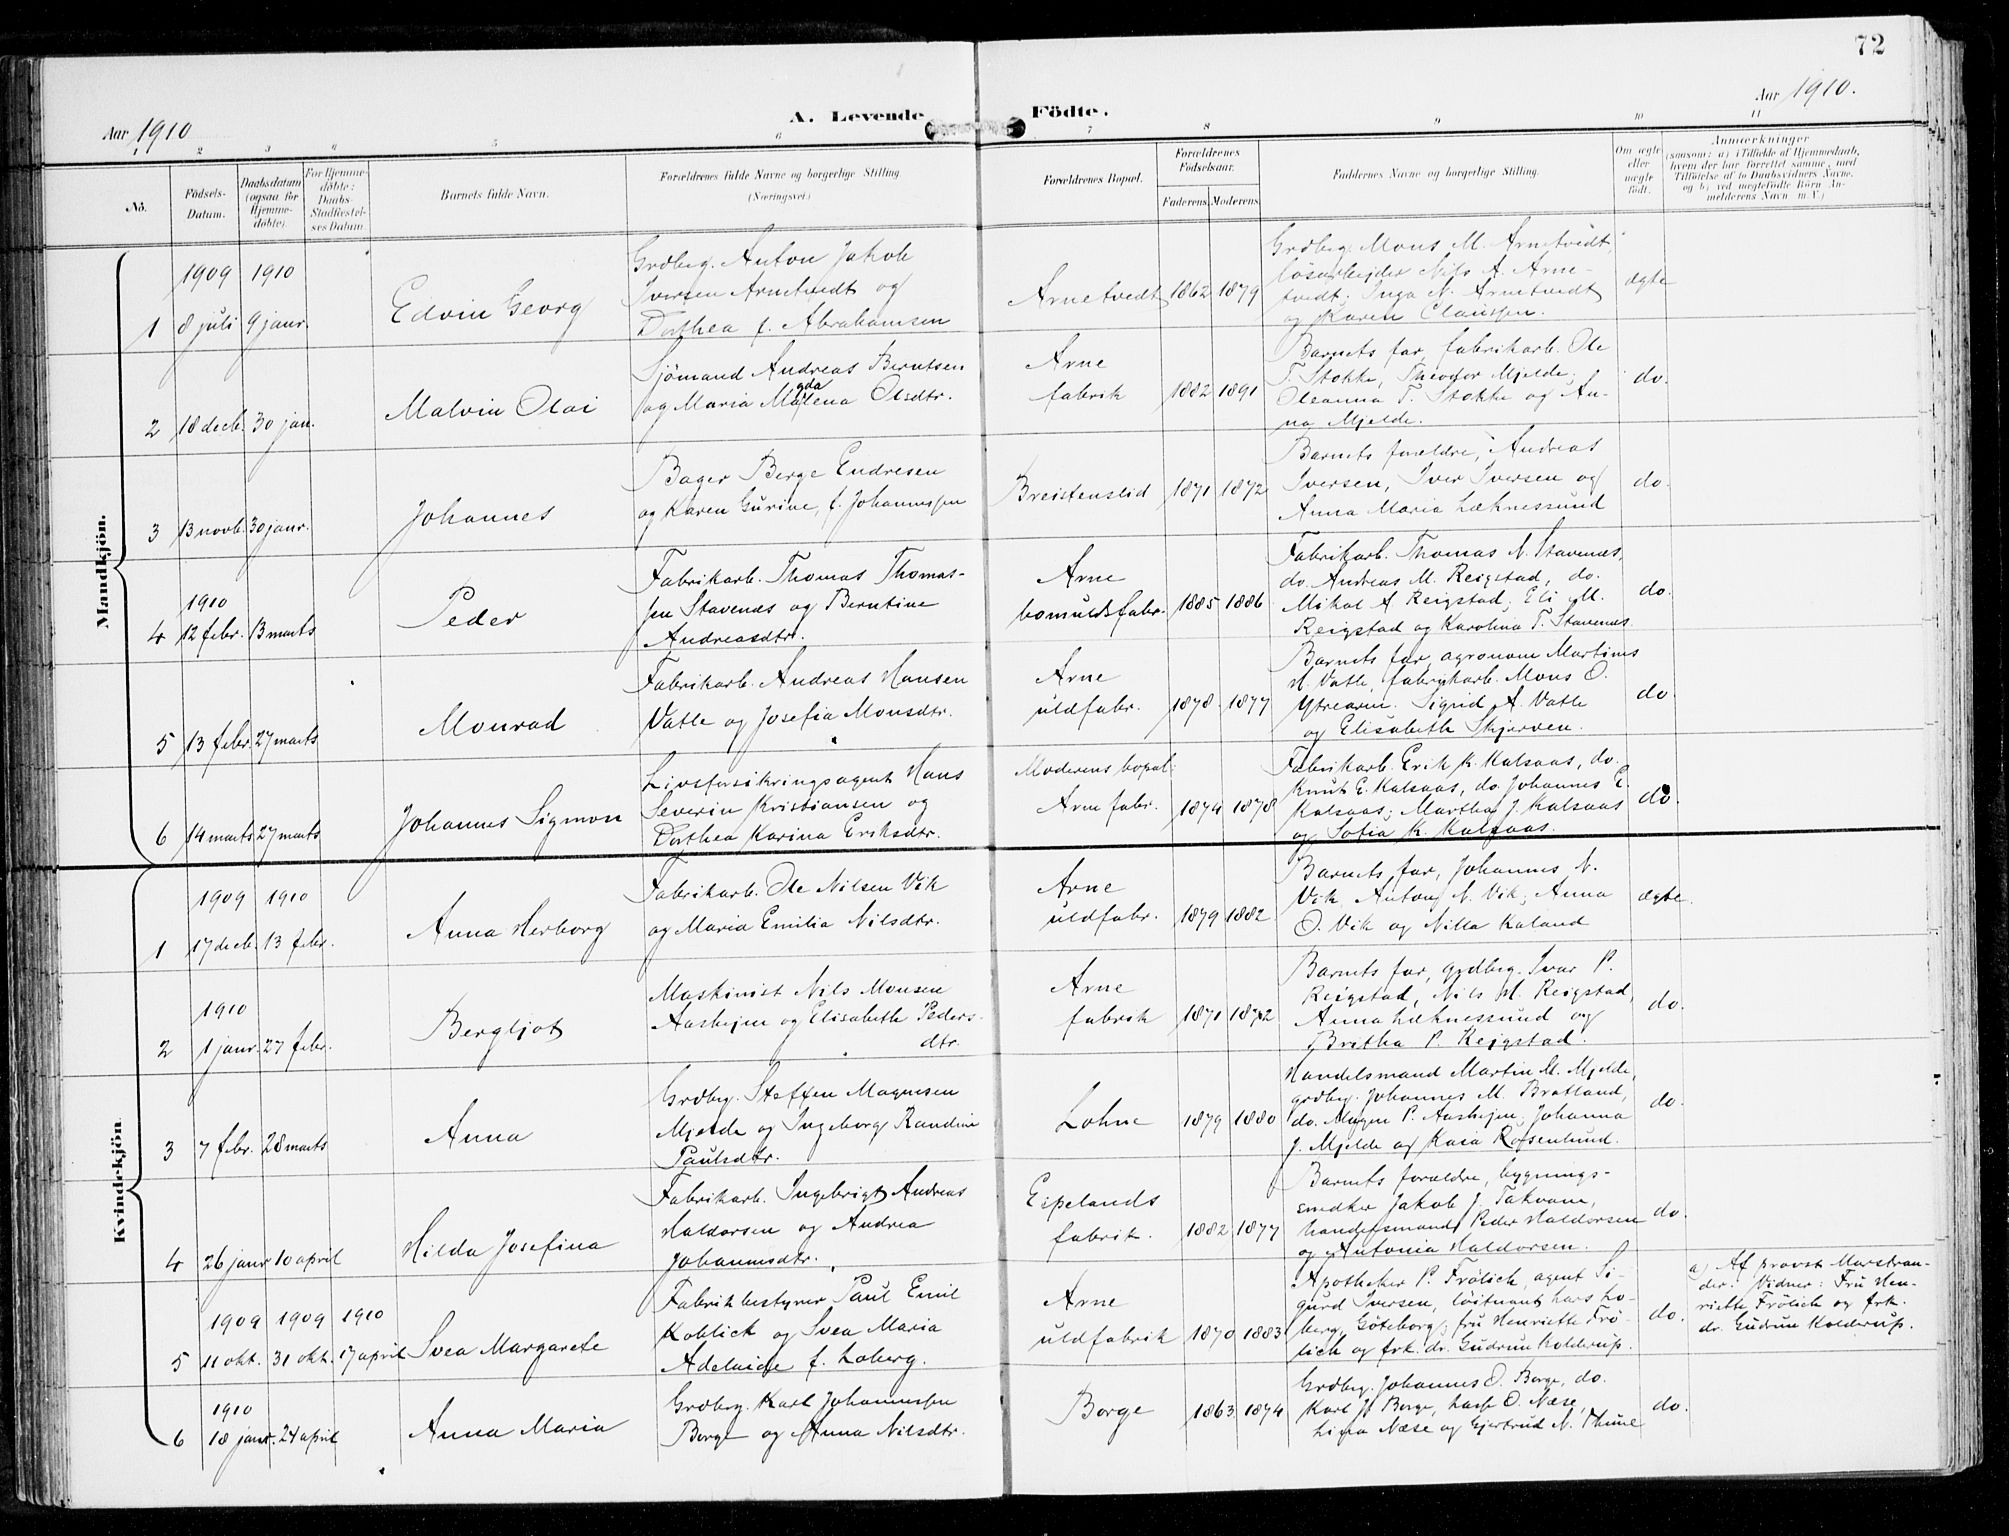 72
Aar 1910
A. Levende
Födte.
Aar 1910.
2 3 4 5 6 7 8 9 10 11
No.
Födsels-
Datum.
Daabsdatum
(ogsaa for
Hjemme-
döbte).
For Hjemme-
döbte:
Daabs-
Stadfæstel-
ses Datum.
Barnets fulde Navn.
Forældrenes fulde Navne og borgerlige Stilling.
(Næringsvei)
Forældrenes Bopæl.
Forældrenes
Födselsaar.
Faderens. Moderens.
Faddernes Navne og borgerlige Stilling.
Om ægte
eller
uægte
födt.
Anmærkninger
(saasom: a) i Tilfælde af Hjemmedaab,
hvem der har forrettet samme, med
Tilföielse af to Daabsvidners Navne,
og b) ved uægtefödte Börn An-
melderens Navn m. V.)
Mandkjön.
1
1909
8 juli
1910
9 janr.
Edvin Georg
Grdbrg. Anton Jakob
Iversen Arnetvedt og
Dorthea f. Abrahamsen
Arnetvedt
1862
1879
Grdbrg. Mons M. Arnetvedt,
lösarbejder Nils A. Arne-
tvedt; Inga N. Arnetvedt
og Karen Claussen.
ægte
2
18 decb.
30 jan.
Malvin Olai
Sjömand Andreas Berntsen
og Maria Magdalena Olsdtr.
Arne
fabrik
1882
1891
Barnets far, fabrikarb. Ole
T. Stokke, Theodor Mjelde;
Oleanna T. Stokke og An-
na Mjelde.
do.
3
13 novb.
30 janr.
Johannes
Bager Berge Endresen
og Karen Gurine, f. Johannssen
Breistenslid
1871
1872
Barnets forældre, Andreas
Iversen, Iver Iversen og
Anna Maria Læknessund
do.
4
1910
12 febr.
13 marts
Peder
Fabrikarb. Thomas Thomas-
sen Stavenæs og Berntine
Andreasdtr.
Arne
bomuldsfabr.
1885
1886
Fabrikarb. Thomas N. Stavenæs,
do. Andreas M. Reigstad, do.
Mikal A Reigstad; Eli M.
Reigstad og Karolina T. Stavenæs
do.
5
13 febr.
27 marts
Monrad
Fabrikarb. Andreas Hansen
Vatle og Josefia Monsdtr.
Arne
uldfabr.
1878
1877
Barnets far, agronom Martinus
H. Vatle, fabrikarb. Mons O.
Ytrearne. Sigrid A. Vatle
og Elisabeth Skjerven.
do.
6
14 marts
27 marts
Johannes Sigmon
Livsforsikringsagent Hans
Severin Kristiansen og
Dorthea Karina Eriksdtr.
Moderens bopæl:
Arne fabr.
1874
1878
Fabrikarb. Erik K. Kalsaas, do.
Knut E. Kalsaas, do. Johannes E.
Kalsaas; Martha J. Kalsaas
og Sofia K. Kalsaas.
do.
Kvindekjön.
1
1909
17 decb.
1910
13 febr.
Anna Herborg
Fabrikarb. Ole Nilsen Vik
og Maria Emilia Nilsdtr.
Arne
uldfabr.
1879
1882
Barnets far, Johannes N.
Vik, Anton N. Vik; Anna
O. Vik og Nilla Kaland
ægte
2
1910
1 janr.
27 febr.
Bergljot
Maskinist Nils Monsen
Aashejm og Elisabeth Peders-
dtr.
Arne
fabrik
1871
1872
Barnets far, grdbrg. Ivar P.
Reigstad, Nils H. Reigstad,
Anna Læknessund og
Britha P. Reigstad.
do.
3
7 febr.
28 marts
Anna
Grdbrg. Steffen Magnesen
Mjelde og Ingeborg Randine
Paulsdtr.
Lohne
1879
1880
Handelsmand Martin M. Mjelde,
grdbrg. Johannes M. Bratland,
do. Mogen P. Aashejm; Johanna
J. Mjelde og Kaia Rosenlund.
do.
4
26 janr
10 april
Hilda Josefina
Fabrikarb. Ingebrigt Andreas
Haldorsen og Andrea
Johannsdtr.
Espelands
fabrik.
1882
1877
Barnets forældre, bygnings-
snedker Jakob J. Takvam,
handelsmand Peder Haldorsen
og Antonia Haldorsen.
do.
5
1909
11 okt.
1909
31 okt.
1910
17 april
Svea Margarete
Fabrikbestyrer Paul Emil
Koblick og Svea Maria
Adelaide f. Loberg.
Arne
uldfabrik
1870
1883
Apotheker P. Frölich, agent Si-
gurd Iversen, löitnant Lars Lo-
berg, Göteborg; fru Henriette Frö-
lich og frk. dr. Gudrun Kolderup.
do.
a) Af provst Marstran-
der. Vidner: Fru Hen-
riette Frölich og frk.
dr. Gudrun Kolderup.
6
1910
18 janr.
24 april
Anna Maria
Grdbrg. Karl Johannssen
Borge og Anna Nilsdtr.
Borge
1863
1874
Grdbrg. Johannes O. Borge, do.
Karl J. Borge, Lasse O. Næse,
Lina Næse og Gjertrud N. Thune
do.